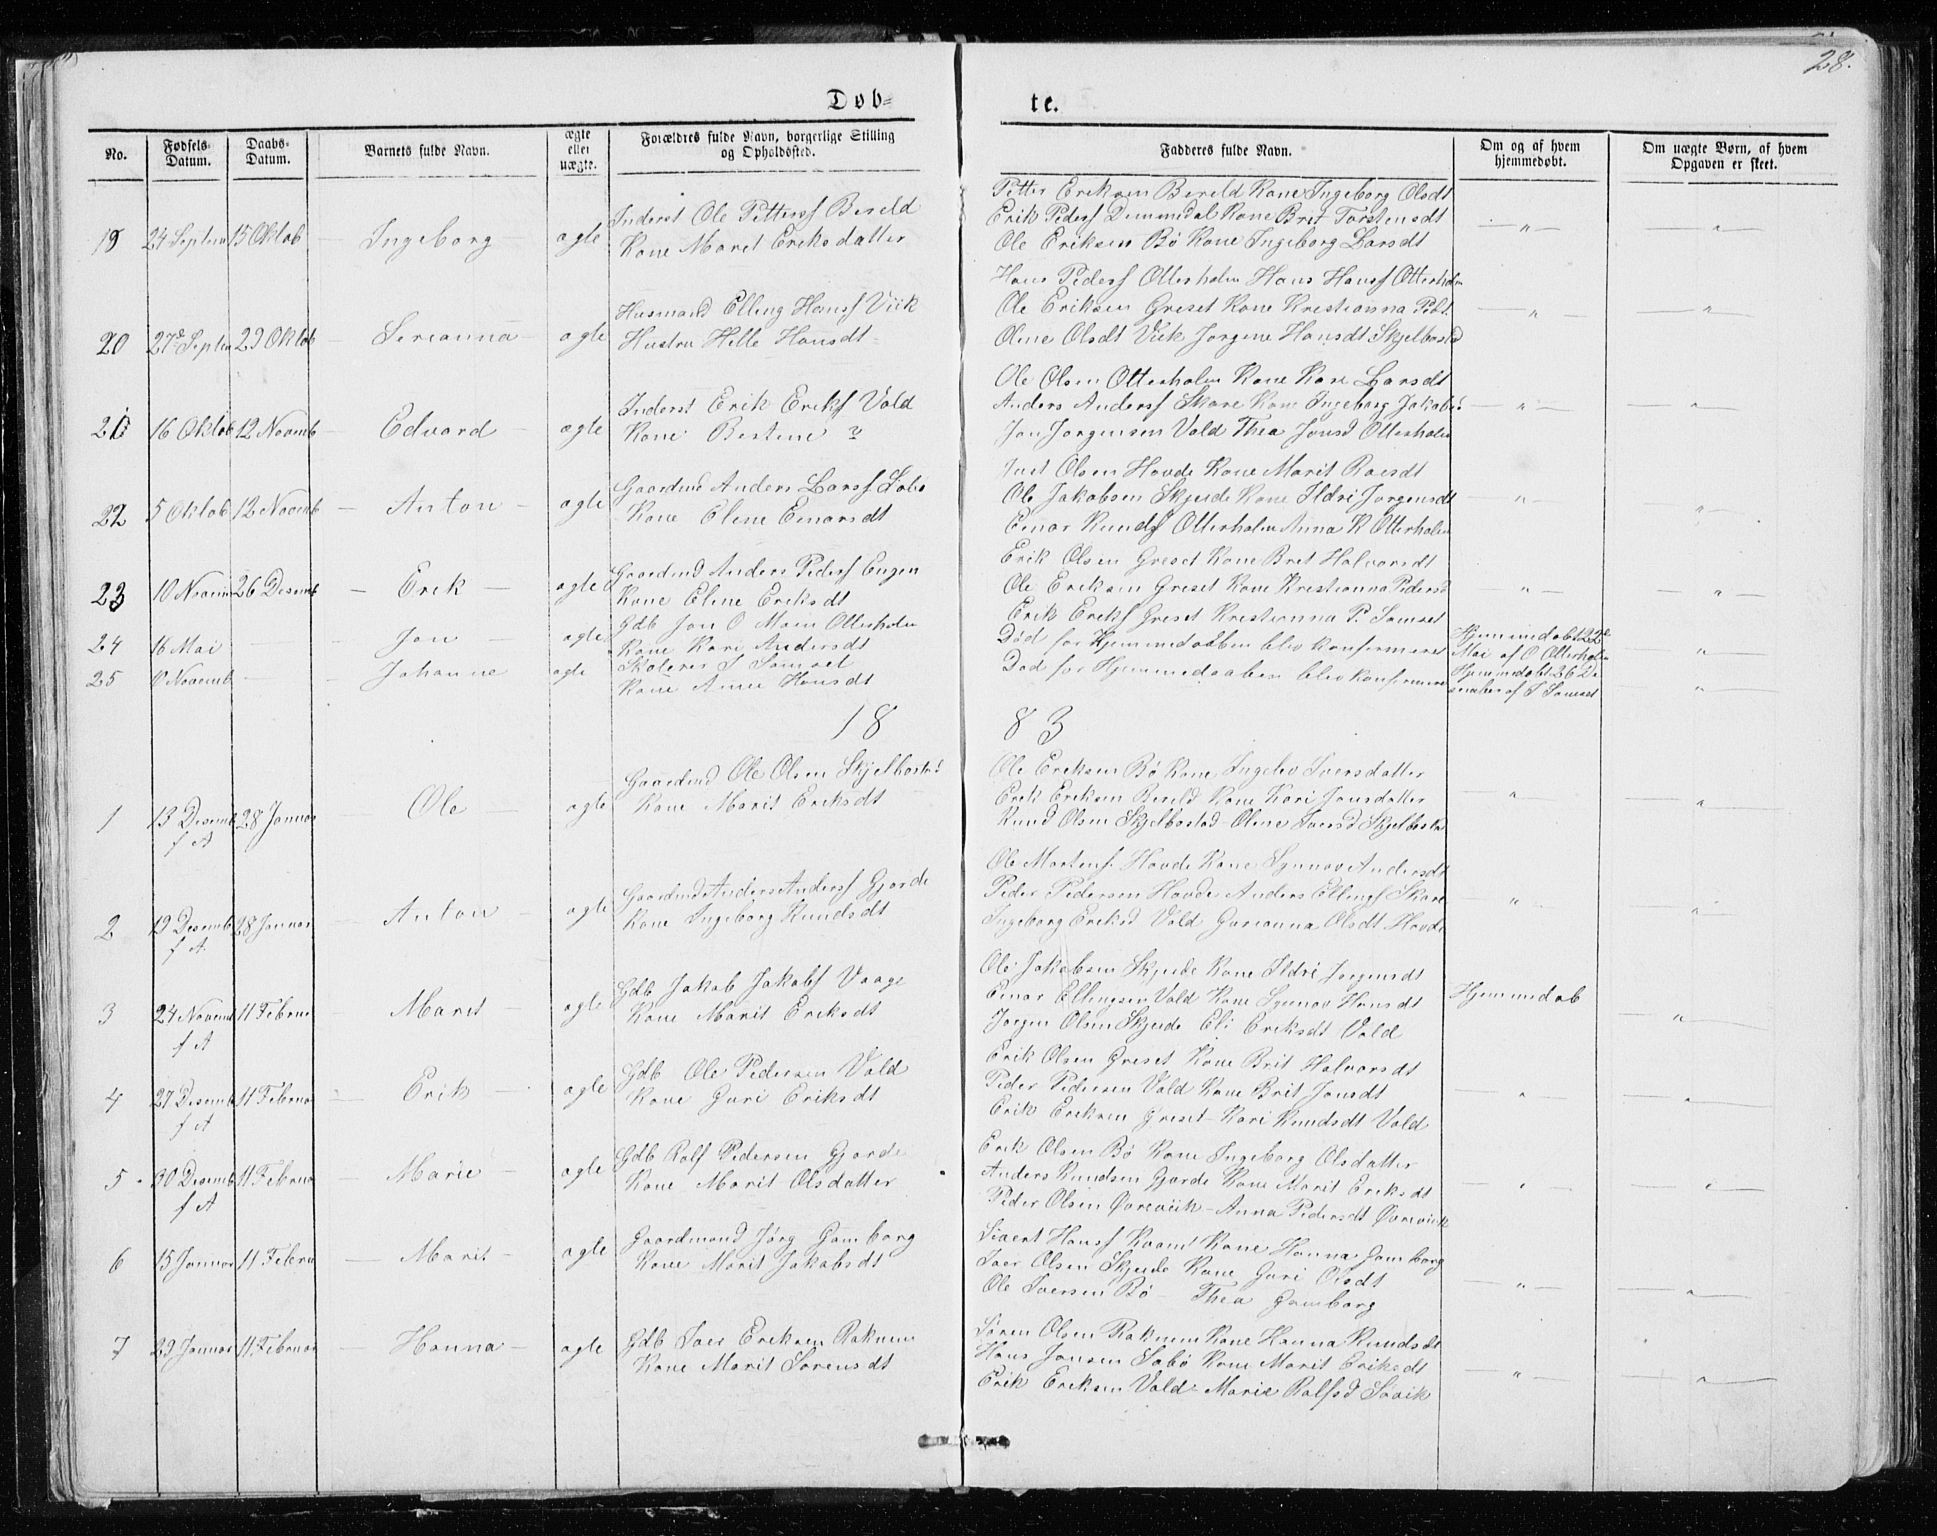 28.
Døb=
te.
No.
Fødsels-
Datum.
Daabs-
Datum.
Barnets fulde Navn.
ægte
eller
uægte.
Forældres fulde Navn, borgerlige Stilling
og Opholdssted.
Fadderes fulde Navn.
Om og af hvem
hjemmedøbt.
Om uægte Børn, af hvem
Opgaven er skeet.
19 24 Septem 15 Oktob — Ingeborg — ægte
Inderst Ole Pettersf Bereld
Kone Maret Eriksdatter
Petter Eriksen Bereld Kone Ingeborg Olsdt
Erik Pedersf Kone Bret Torstensdt
Ole Eriksen Bø Kone Ingeborg Larsdt
— " — — " —
20 27d Septem 29 Oktob — Serianna — ægte
Husmand Elling Hansf Viik
Hustru Helle Hansdt
Hans Pedersf Otterholm Hans Hansf Otterholm
Ole Eriksen Greset Kone Krestianna Pdt
Oline Olsdt Viik Jørgine Hansdt Skjelbostad
— " — — " —
21 16 Oktob 12 Novemb — Edvard — ægte
Inderst Erik Eriksf Vold
Kone Bertine
Ole Olsen Otterholm Kone Kari Larsdt
Anders Andersf Skare Kone Ingeborg Jakobsd
Jon Jørgensen Vold Thea Jonsd Otterholm
— " — — " —
22 5 Oktob 12 Novemb — Anton — ægte
Gaardmd Anders Larsf
Kone Elene Einarsdt
Olsen Hovde Kone Marit
Ole Jakobsen Skjerde Kone Ildri Jørgensdt
Einar Knudsf Otterholm Anna K Otterholm
— " — — " —
23 10 Novem 26 Desemb — Erik — ægte
Gaardmd Anders Pedersf Engen
Kone Eline Eriksdt
Erik Olsen Greset Kone Bret Halvorsdt
Ole Eriksen Greset Kone Krestianna Pedersd
Erik Eriksf Greset Krestianna P. Samset
— " — — " —
24 16 Mai — Jon — ægte
Gdb Jon O Moen Otterholm
Kone Kari Andersdt
Død før Hjemmedaaben blev konfirmeret
Hjemmedøbt 22de
Mai af O Otterholm
— " —
25 10 Novemb — Johanne — ægte
Skolerer I Samset
Kone Anne Hansdt
Død før Hjemmedaaben blev konfirmeret
Hjemmedøbt 26 De
sember af I Samset
— " —
18 83
1 13 Desemb 28 Januar — Ole — ægte
f A
Gaardmd Ole Olsen Skjelbostad
Kone Marit Eriksdt
Ole Eriksen Bø Kone Ingelev Iversdatter
Erik Eriksen Bereld Kone Kari Jonsdatter
Knud Olsen Skjelbostad – Olene Iversd Skjelbosta
— " — — " —
2 19 Desemb 28 Januar — Anton — ægte
f A
Gaardmd Anders Andersf Gjørde
Kone Ingeborg Knudsdt
Ole Mortensf. Hovde Kone Synnøv Andersdt
Peder Pedersen Hovde Anders Ellingsf Skare
Ingeborg Eriksd Vold Gurianna Olsdt Hovde
— " — — " —
3 24 Novemb 11 Februa — Marit — ægte
f A
Gdb Jakob Jakobsf Vaage
Kone Marit Eriksdt
Ole Jakobsen Skjerde Kone Ildri Jørgensdt
Einar Ellingsen Vold Kone Synnøv Hansdt
Jørgen Olsen Skjerde Eli Eriksdt Vold
Hjemmedøb
— " —
4 27 Desemb 11 Februar — Erik — ægte
f A
Gdb Ole Pedersen Vold
Kone Guri Eriksdt
Erik Olsen Greset Kone Brit Halvorsdt
Peder Pedersen Vold Kone Brit Jonsdt
Erik Eriksen Greset – Kari Knudsdt Vold
— " — — " —
5 30 Desemb 11 Februa — Marie — ægte
f A
Gdb Rolf Pedersen Gjørde
Kone Marit Olsdatter
Erik Olsen Bø Kone Ingeborg Olsdatter
Anders Knudsen Gjørde Kone Marit Eriksdt
Peder Olsen Øvreviik – Anna Pedersdt Øvreviik
— " — — " —
6 15 Januar 11 Februa — Marit — ægte
Gaardmand Jørg Gamborg
Kone Marit Jakobsdt
Sivert Hansf Kone Hanna Gamborg
Iver Olsen Skjerde Kone Guri Olsdt
Ole Iversen Bø – Thea Gamborg
— " — — " —
7 29 Januar 11 Februar — Hanna — ægte
Gdb Iver Eriksen Raknem
Kone Marit Sørensdt
Søren Olsen Raknem Kone Hanna Knudsdt
Hans Jonsen Søbø Kone Marit Eriksdt
Erik Eriksen Vold – Marie Rolfsd Søvik
— " — — " —